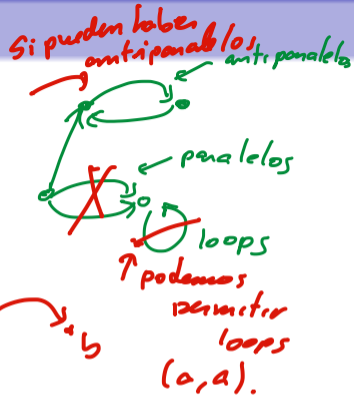 Si pueden haber
antiparalelos
antiparalelos
paralelos
loops
podemos
permitir
loops
b
(a,a).